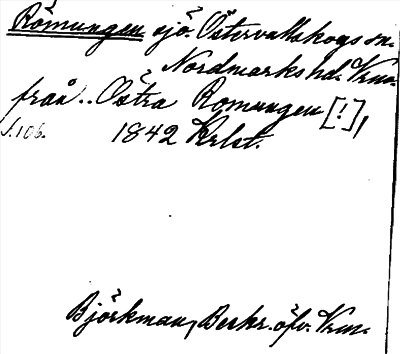 Römungen sjö. Östervallskogs sn.
Nordmarks hd. Vrm.
från.. Östra Romungen [!],
s. 106. 1842 Krlst.
Björkman, Beskr. öfv. Vrm.